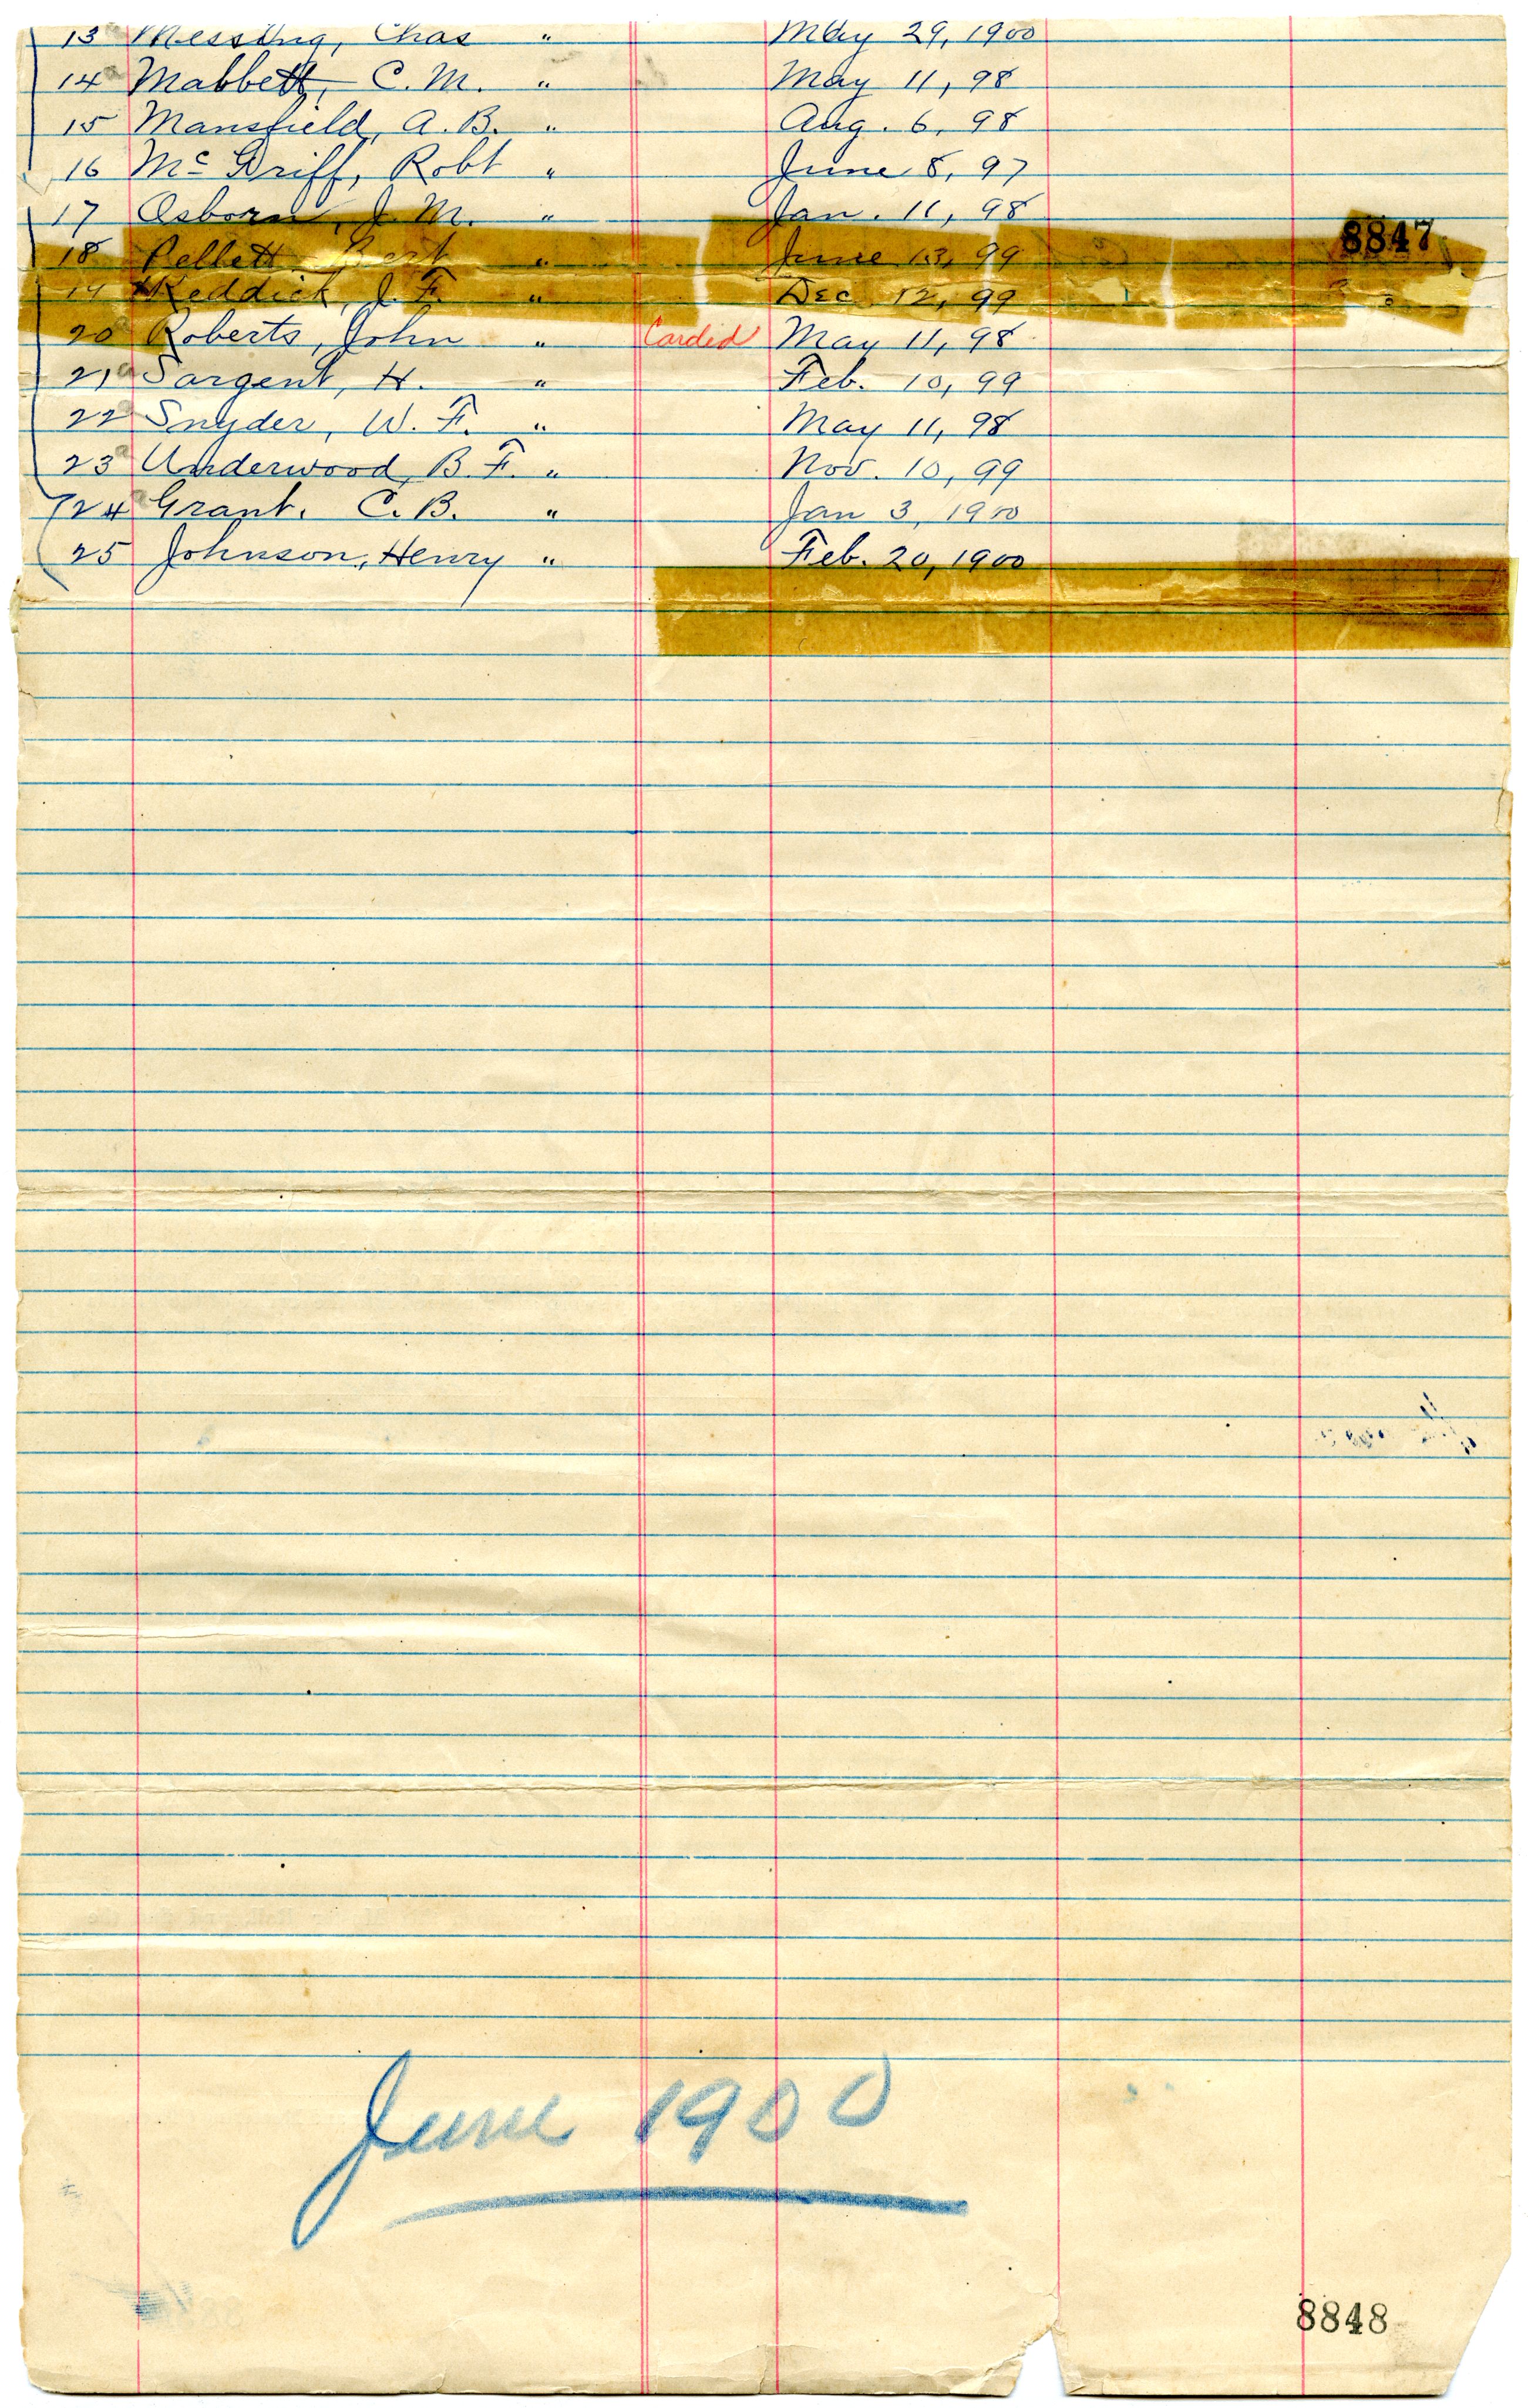 13 Messing, Chas " May 29, 1900
14 a Mabbett, C. M. " May 11, 98
15 Mansfield, A. B. " Aug. 6, 98
16 Mc Griff, Robt " June 8, 97
17 Osborn, J. M. " Jan. 11, 98
8847
18 Pellett Bert " June 13, 99
19 Reddick, J. F. " Dec 12, 99
20 Roberts, John " Carded May 11, 98
21 a Sargent, H. " Feb. 10, 99
22 a Snyder, W. F. " May 11, 98
23 a Underwood, B. F. " Nov. 10, 99
24 a Grant. C. B. " Jan 3, 1900
25 Johnson, Henry " Feb. 20, 1900
June 1900
8848